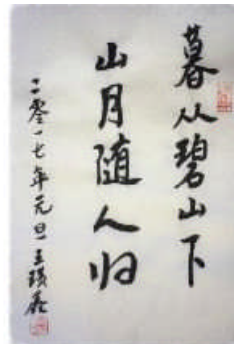 暮从碧山下
山月随人归
二零一七年元旦王